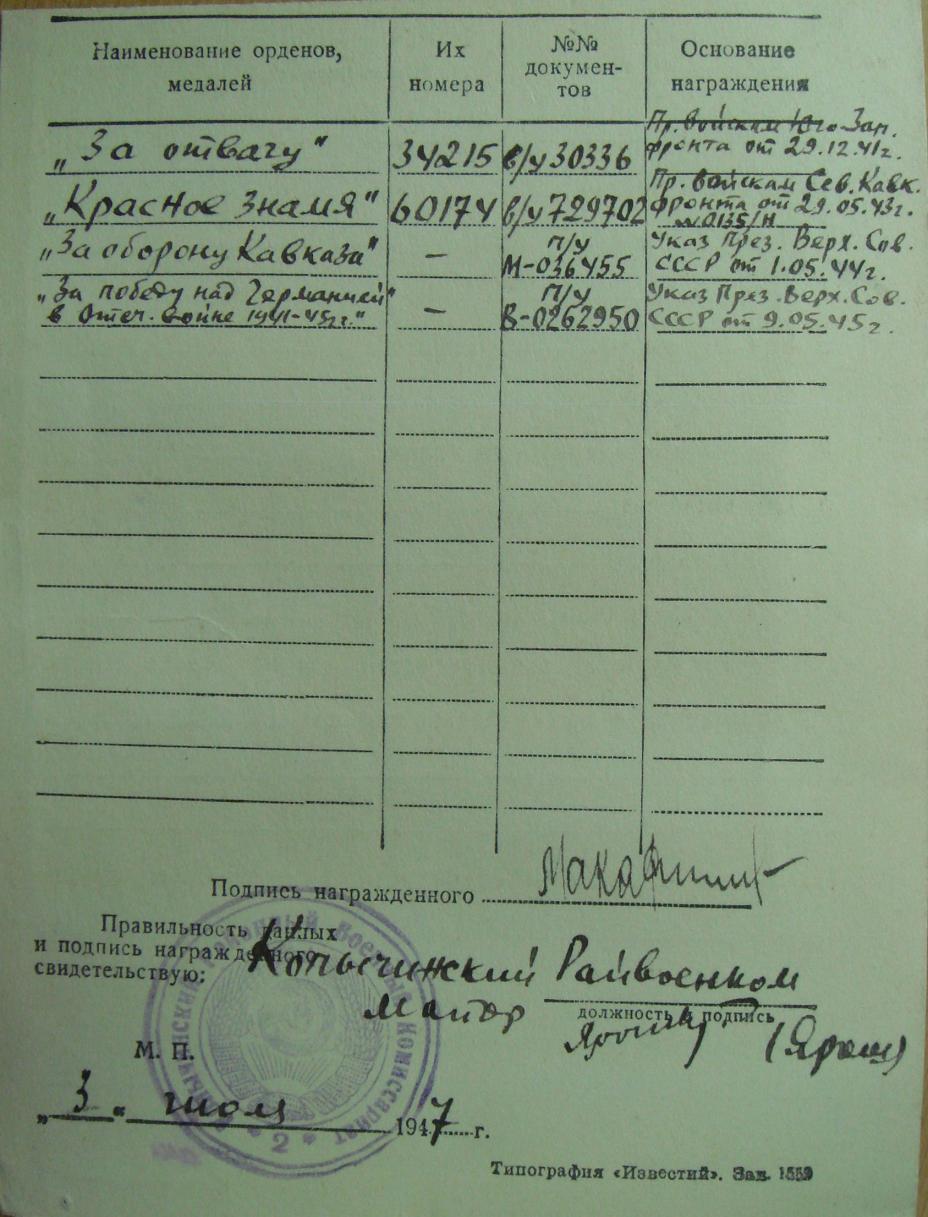 Наименование орденов, медалей
Их номера
№№ докумен-тов
Основание награждения
„За отвагу" 34215 в/у 30336 Пр. войскам Юго-Зап. фронта от 29.12.41г.
„Красное Знамя" 60174 в/у 729702 Пр. войскам Сев. Кавк. фронта от 29.05.43г. №0135/Н
„За оборону Кавказа" — п/у М-036455 Указ През. Верх. Сов. СССР от 1.05.44г.
„За победу над Германией" в Отеч. войне 1941-45гг." — п/у В-0262950 Указ През. Верх. Сов. СССР от 9.05.45г.
Подпись награжденного
Правильность данных
и подпись награжденного
свидетельствую:
Копычинский Райвоенком
майор
должность и подпись
(Ярош)
М. П.
„3" июля 1947 г.
Районный Военный Комиссариат
2
Типография «Известий». Зак. 1559